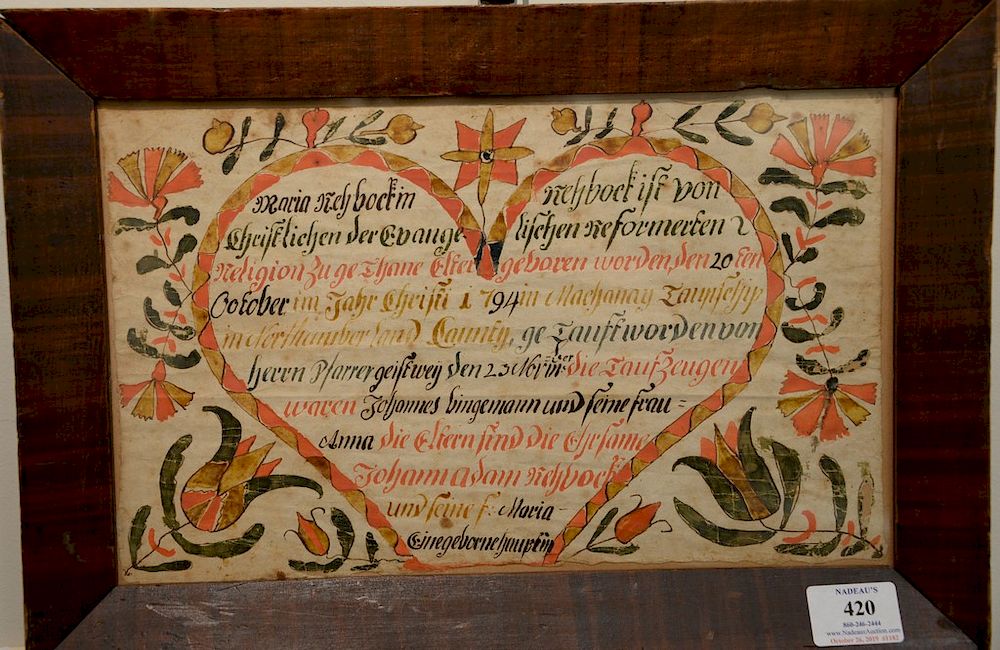 Maria Rehbockin Rehbock ist von
Christlichen der Evange lischen Reformerten
Religion Zu ge Thane Elter geboren worden, den 20 ten
October im Jahr Christi 1794 in Machanay Taunschip
in Northumberland Caunty, ge Tauft worden von
herrn Pfarrer geistwey den 23 Novmber die Taufzeugen
waren Johannes bingemann und seine frau =
Anna die Eltern sind die Ehrsame
Johann adam Rehbock
und seine f: Maria
Eine geborne hauptin
NADEAU'S
420
860-246-2444
www.NadeausAuction.com
October 26, 2019 #1182